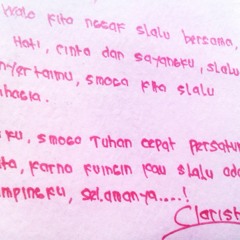 Walo kita nggak slalu bersama,
Hati, cinta dan sayangku, slalu
nyertaimu, smoga kita slalu
bahagia.
ku, smoga Tuhan cepat persatu
ta, karna kuingin kau slalu ada
mpingku, selamanya.....!
Clarist